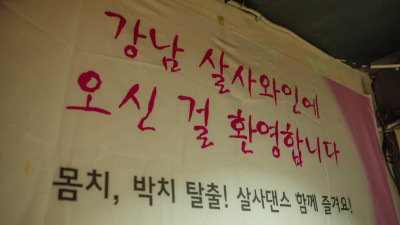 강남 살사와인에
오신 걸 환영합니다
몸치, 박치 탈출! 살사댄스 함께 즐겨요!